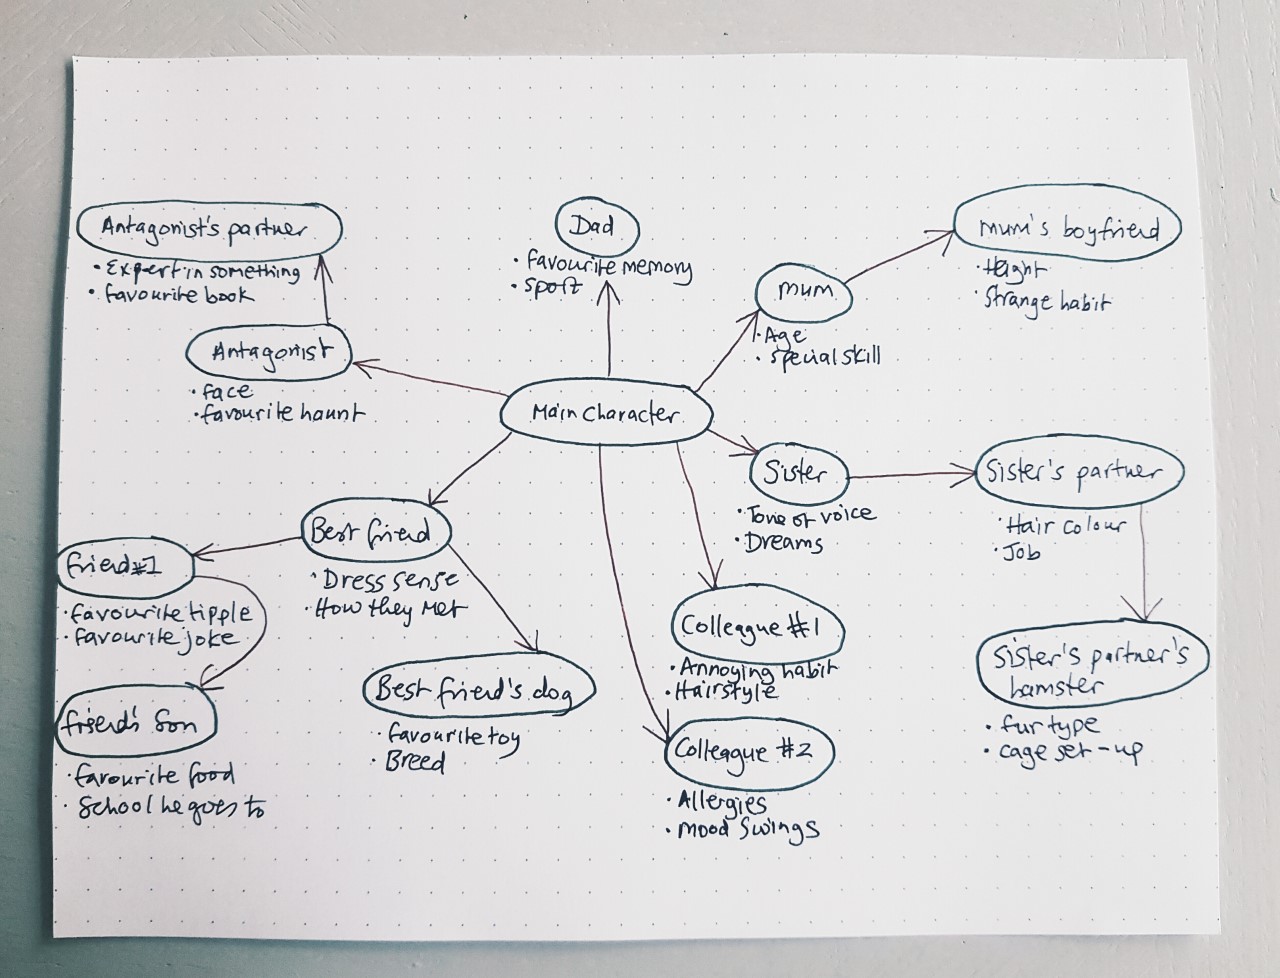 Antagonist's partner
• Expert in something
• favourite book
Antagonist
• face
• favourite haunt
Dad
• favourite memory
• sport
mum
• Age
• special skill
mum's boyfriend
• Height
• Strange habit
Main Character
Sister
• Tone of voice
• Dreams
Sister's partner
• Hair colour
• Job
Sister's partner's
hamster
• fur type
• cage set-up
Best friend
• Dress sense
• How they met
friend #1
• favourite tipple
• favourite joke
friend's son
• favourite food
• School he goes to
Best friend's dog
• favourite toy
• Breed
Colleague #1
• Annoying habit
• Hairstyle
Colleague #2
• Allergies
• mood swings